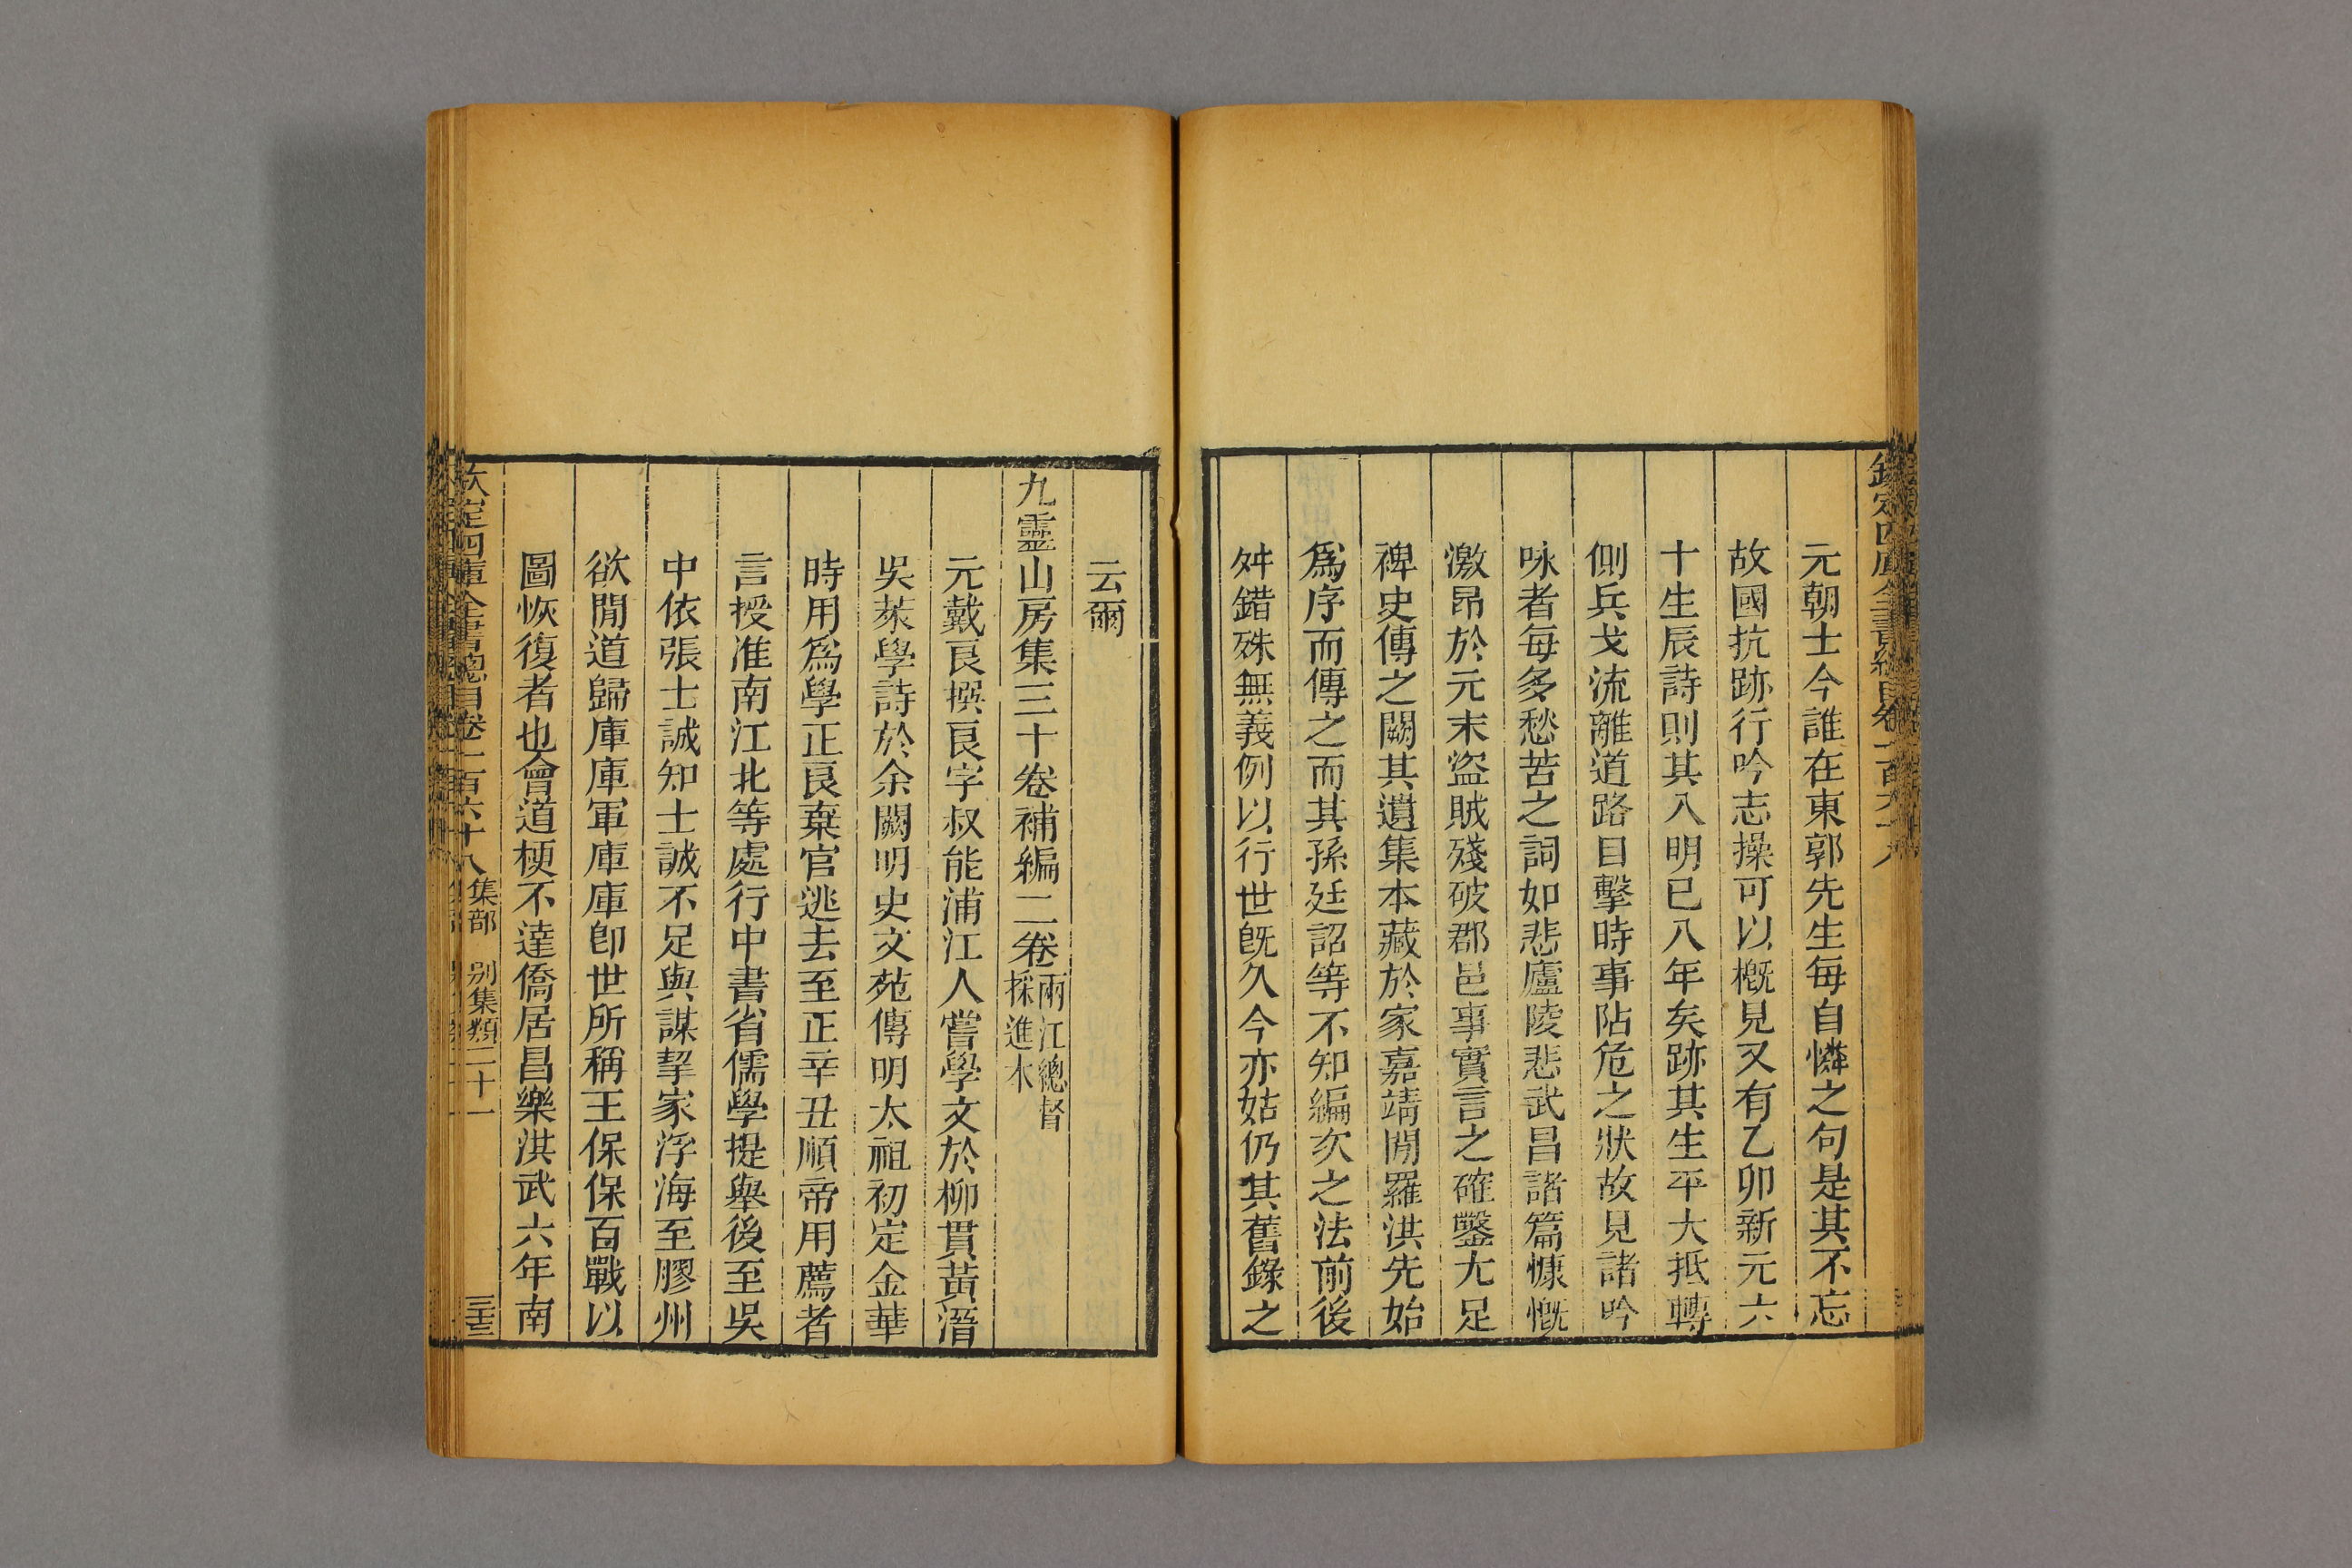 元朝士今誰在東郭先生每自憐之句是其不忘
故國抗跡行吟志操可以槪見又有乙卯新元六
十生辰詩則其入明已八年矣跡其生平大抵轉
側兵戈流離道路目擊時事阽危之狀故見諸吟
咏者每多愁苦之詞如悲廬陵悲武昌諸篇慷慨
激昂於元末盜賊殘破郡邑事實言之確鑿尤足
禆史傳之闕其遺集本藏於家嘉靖閒羅洪先始
爲序而傳之而其孫廷詔等不知編次之法前後
舛錯殊無義例以行世旣久今亦姑仍其舊錄之
云爾
九靈山房集三十卷補編二卷兩江總督
採進本
元戴良撰良字叔能浦江人嘗學文於柳貫黃溍
吳萊學詩於余闕明史文苑傳明太祖初定金華
時用爲學正良棄官逃去至正辛丑順帝用薦者
言授淮南江北等處行中書省儒學提舉後至吳
中依張士誠知士誠不足與謀挈家浮海至膠州
欲閒道歸庫庫軍庫庫卽世所稱王保保百戰以
圖恢復者也會道梗不達僑居昌樂洪武六年南
欽定四庫全書總目卷一百六十八 集部 别集類二十一